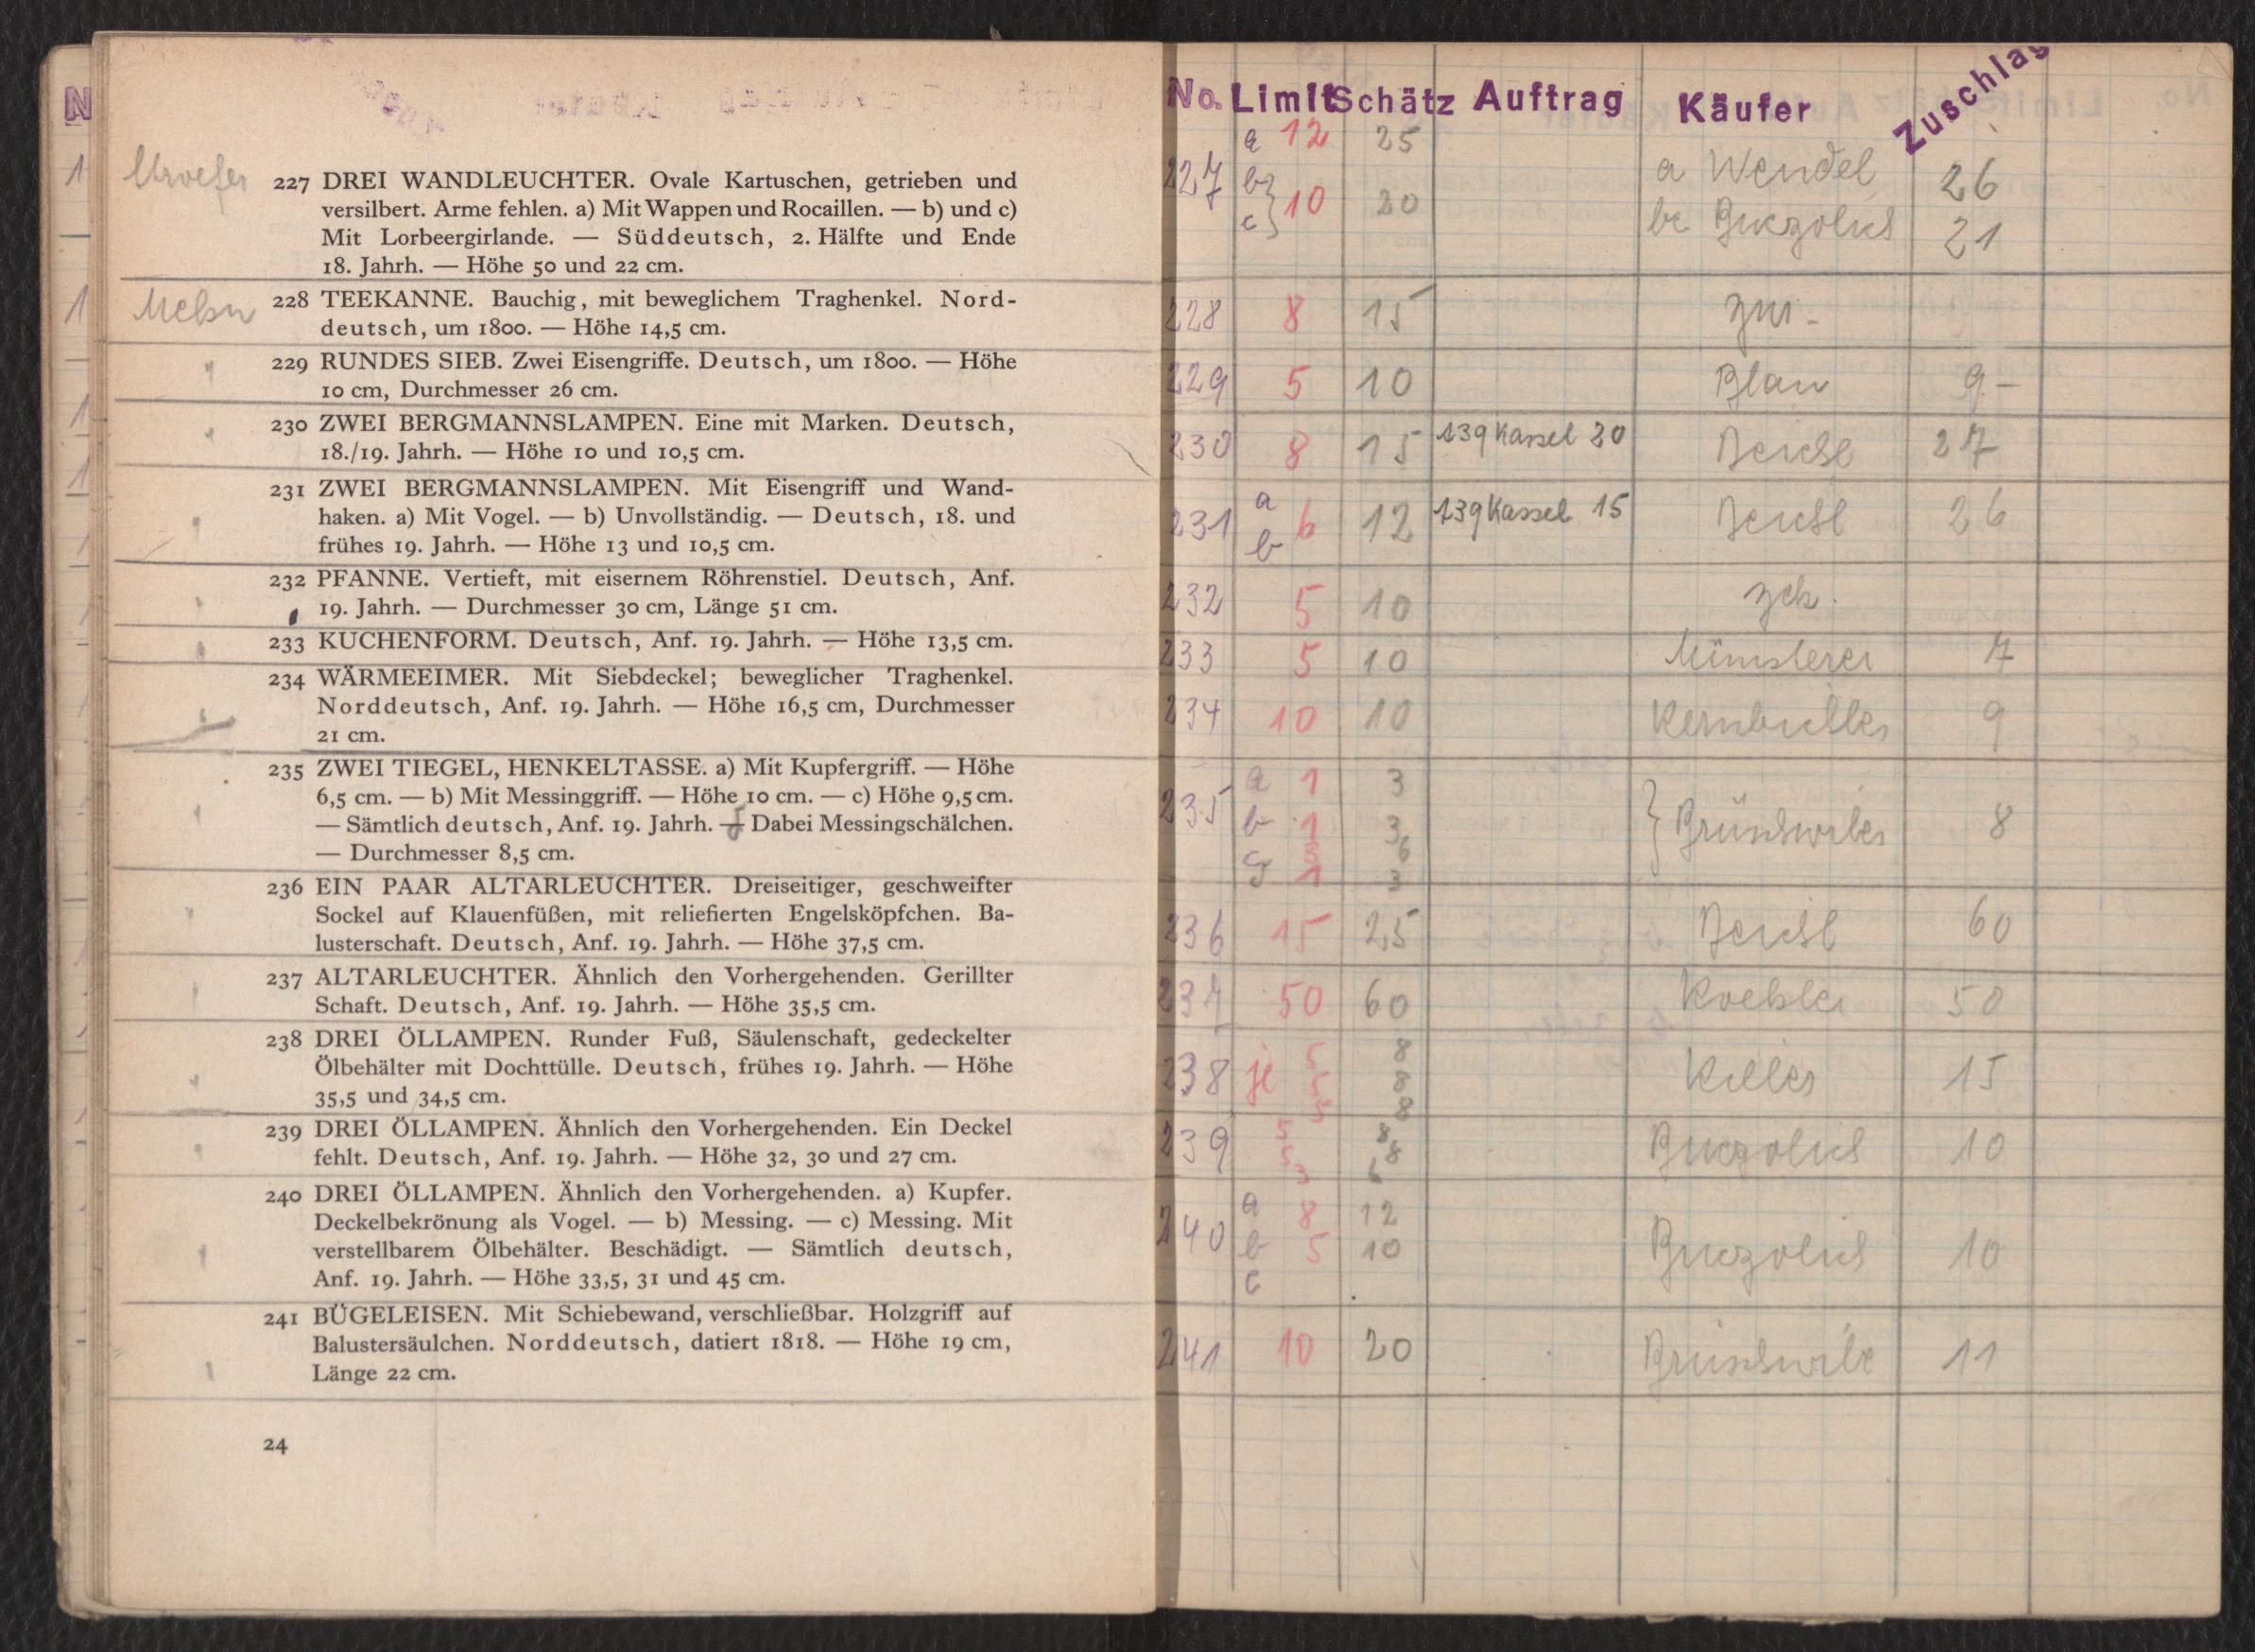 227 DREI WANDLEUCHTER. Ovale Kartuschen, getrieben und
versilbert. Arme fehlen. a) Mit Wappen und Rocaillen. — b) und c)
Mit Lorbeergirlande. — Süddeutsch, 2. Hälfte und Ende
18. Jahrh. — Höhe 50 und 22 cm.
228 TEEKANNE. Bauchig, mit beweglichem Traghenkel. Nord-
deutsch, um 1800. — Höhe 14,5 cm.
229 RUNDES SIEB. Zwei Eisengriffe. Deutsch, um 1800. — Höhe
10 cm, Durchmesser 26 cm.
230 ZWEI BERGMANNSLAMPEN. Eine mit Marken. Deutsch,
18./19. Jahrh. — Höhe 10 und 10,5 cm.
231 ZWEI BERGMANNSLAMPEN. Mit Eisengriff und Wand-
haken. a) Mit Vogel. — b) Unvollständig. — Deutsch, 18. und
frühes 19. Jahrh. — Höhe 13 und 10,5 cm.
232 PFANNE. Vertieft, mit eisernem Röhrenstiel. Deutsch, Anf.
19. Jahrh. — Durchmesser 30 cm, Länge 51 cm.
233 KUCHENFORM. Deutsch, Anf. 19. Jahrh. — Höhe 13,5 cm.
234 WÄRMEEIMER. Mit Siebdeckel; beweglicher Traghenkel.
Norddeutsch, Anf. 19. Jahrh. — Höhe 16,5 cm, Durchmesser
21 cm.
235 ZWEI TIEGEL, HENKELTASSE. a) Mit Kupfergriff. — Höhe
6,5 cm. — b) Mit Messinggriff. — Höhe 10 cm. — c) Höhe 9,5 cm.
— Sämtlich deutsch, Anf. 19. Jahrh. — Dabei Messingschälchen.
— Durchmesser 8,5 cm.
236 EIN PAAR ALTARLEUCHTER. Dreiseitiger, geschweifter
Sockel auf Klauenfüßen, mit reliefierten Engelsköpfchen. Ba-
lusterschaft. Deutsch, Anf. 19. Jahrh. — Höhe 37,5 cm.
237 ALTARLEUCHTER. Ähnlich den Vorhergehenden. Gerillter
Schaft. Deutsch, Anf. 19. Jahrh. — Höhe 35,5 cm.
238 DREI ÖLLAMPEN. Runder Fuß, Säulenschaft, gedeckelter
Ölbehälter mit Dochttülle. Deutsch, frühes 19. Jahrh. — Höhe
35,5 und 34,5 cm.
239 DREI ÖLLAMPEN. Ähnlich den Vorhergehenden. Ein Deckel
fehlt. Deutsch, Anf. 19. Jahrh. — Höhe 32, 30 und 27 cm.
240 DREI ÖLLAMPEN. Ähnlich den Vorhergehenden. a) Kupfer.
Deckelbekrönung als Vogel. — b) Messing. — c) Messing. Mit
verstellbarem Ölbehälter. Beschädigt. — Sämtlich deutsch,
Anf. 19. Jahrh. — Höhe 33,5, 31 und 45 cm.
241 BÜGELEISEN. Mit Schiebewand, verschließbar. Holzgriff auf
Balustersäulchen. Norddeutsch, datiert 1818. — Höhe 19 cm,
Länge 22 cm.
24
No. Limit Schätz Auftrag Käufer Zuschlag
a 12 25 a Wendel 26
227 b c } 10 20 bc 21
228 8 15
229 5 10 Blau 9 –
230 8 15 139 Kassel 20 27
231 a b 6 12 139 Kassel 15 26
232 5 10
233 5 10 Münsterer 7
234 10 10 9
235 a 1 3
b 1 3 8
c 6
d 1 3
236 15 25 60
237 50 60 Koehler 50
238 je 5 8 15
5 8
5 8
239 5 8 10
5 8
3 6
240 a 8 12
b 5 10 10
c
241 10 20 11